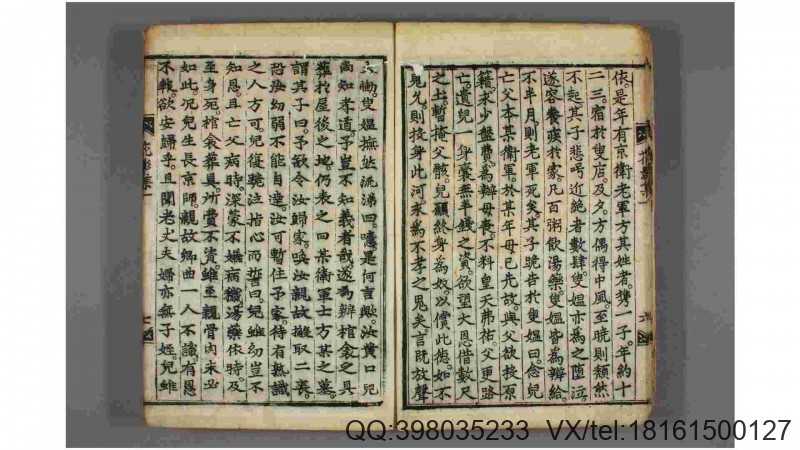 依是年有京衛老軍方其姓者携一子年約十
二三宿於叟店及夕方偶得中風至曉則頹然
不起其子悲号近絶者數肆叟媼亦為之墮泣
遂容養疾於家凡百粥飲湯藥叟媼皆為辦給
不半月則老軍死矣其子跪告於叟媼曰念兒
亡父本某衛軍於某年母已先故與父欲投原
籍求少盤費為辦母喪不料皇天弗祐父更路
亡遺兒一身囊無半錢之資欲望大恩借數尺
之土暫掩父骸兒願終身為奴以償此德如不
見允則投身此河永為不孝之鬼矣言旣放聲
大慟叟媼撫之流涕曰噫是何言歟汝黃口兒
尚知孝道予豈不知義者哉遂為辦棺衾之具
葬於屋後之地仍表之曰某衛軍士方某之墓
謂其子曰予欲令汝歸家喚汝親故搬取二喪
恐汝幼弱不能自達汝可暫住予家待有熟識
之人方可兒復跪泣指心而誓曰兒雖幼豈不
知恩且亡父病時深蒙不嫌病穢湯藥依時及
至身死棺衾葬具所費不資雖至親骨肉未必
如此况兒生長京師親故鄉曲一人不識有恩
不報欲安歸乎且聞老丈夫婦亦無子姪兒雖
花影集
QQ:398035233 VX/tel:18161500127